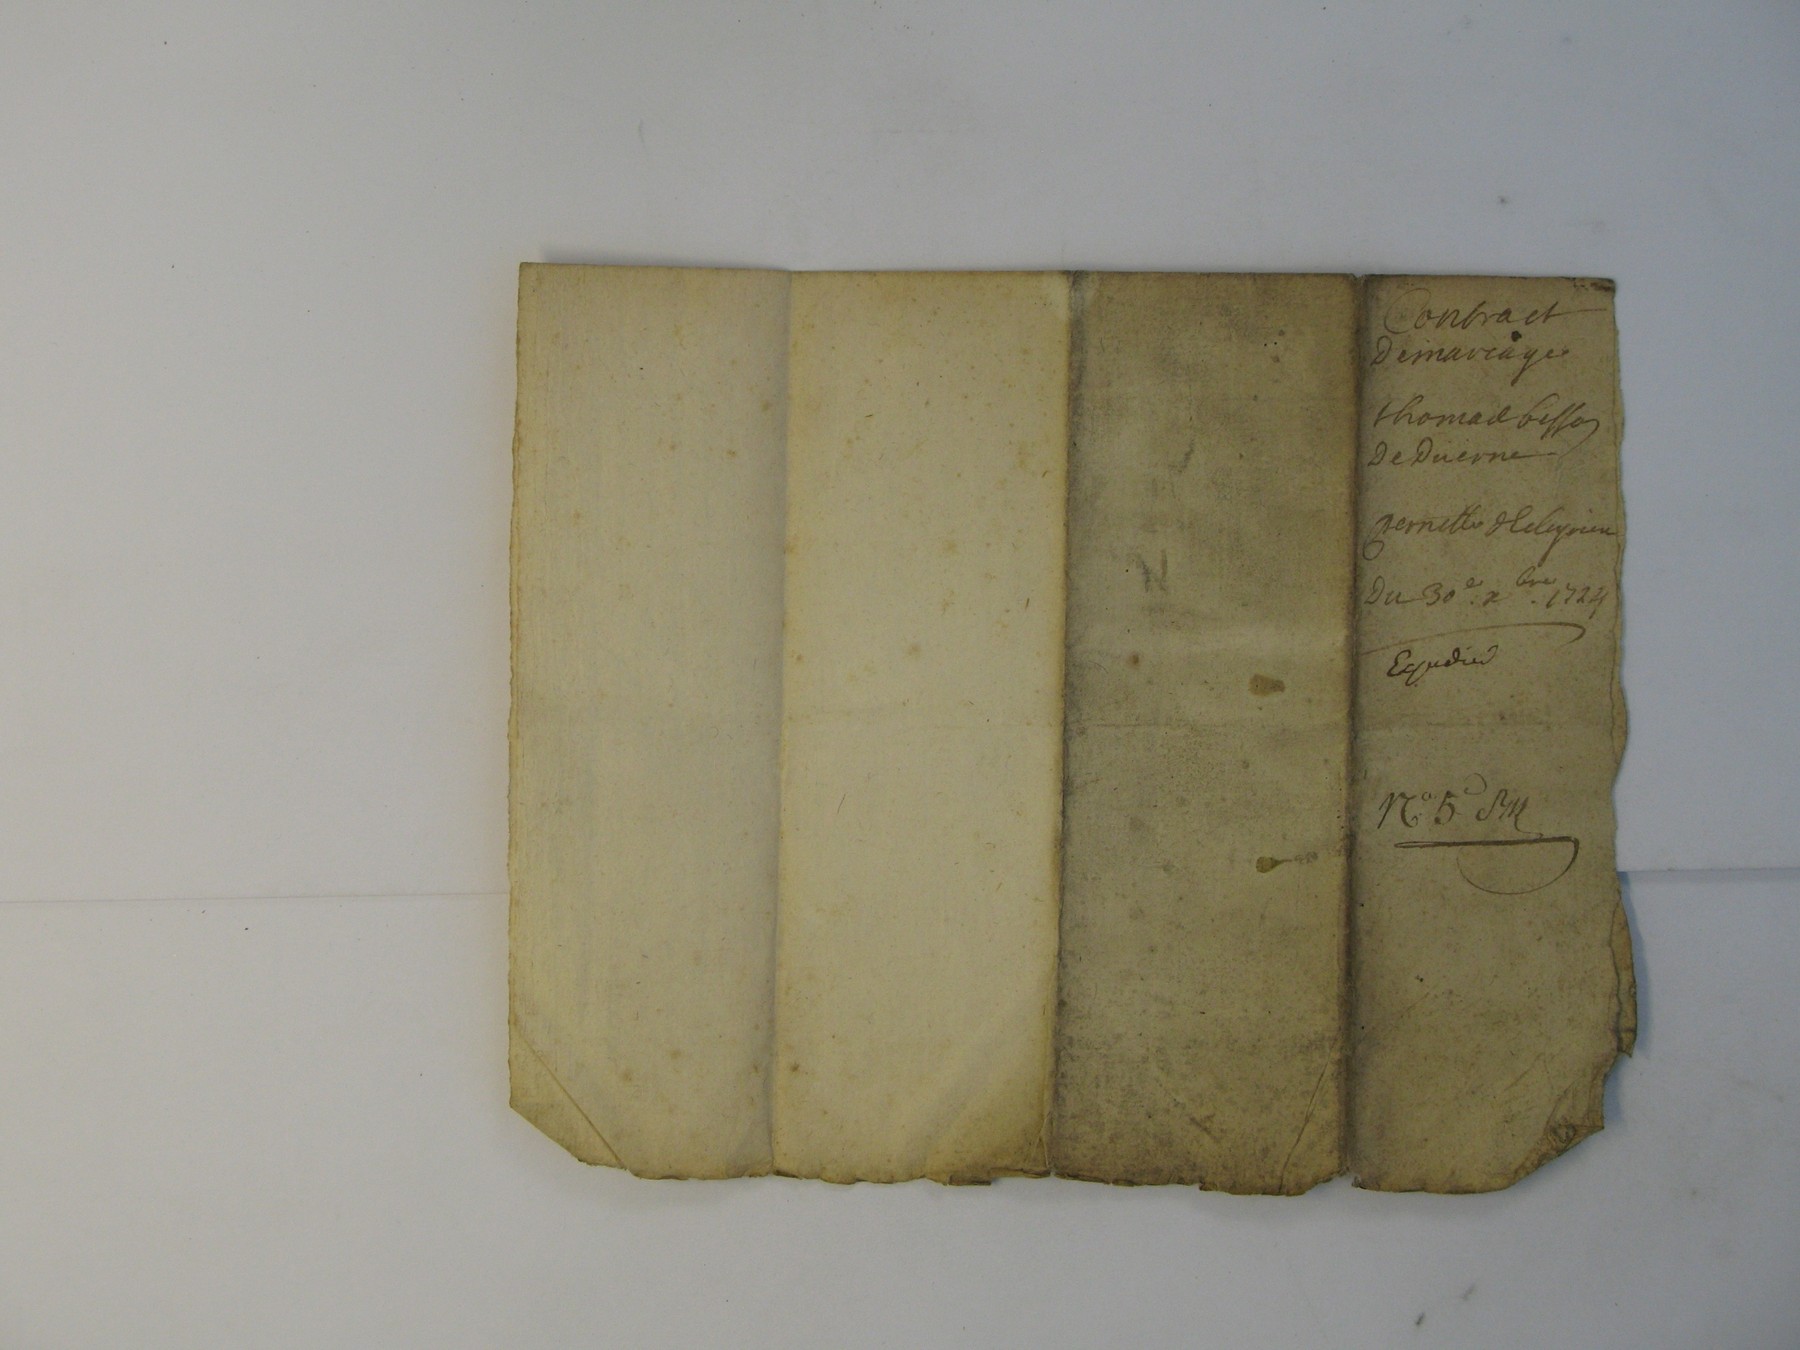 Contract
De mariage
thomas besson
De Duerne
pernette
Du 30e. xbre. 1724
Expedié
N.o 5e